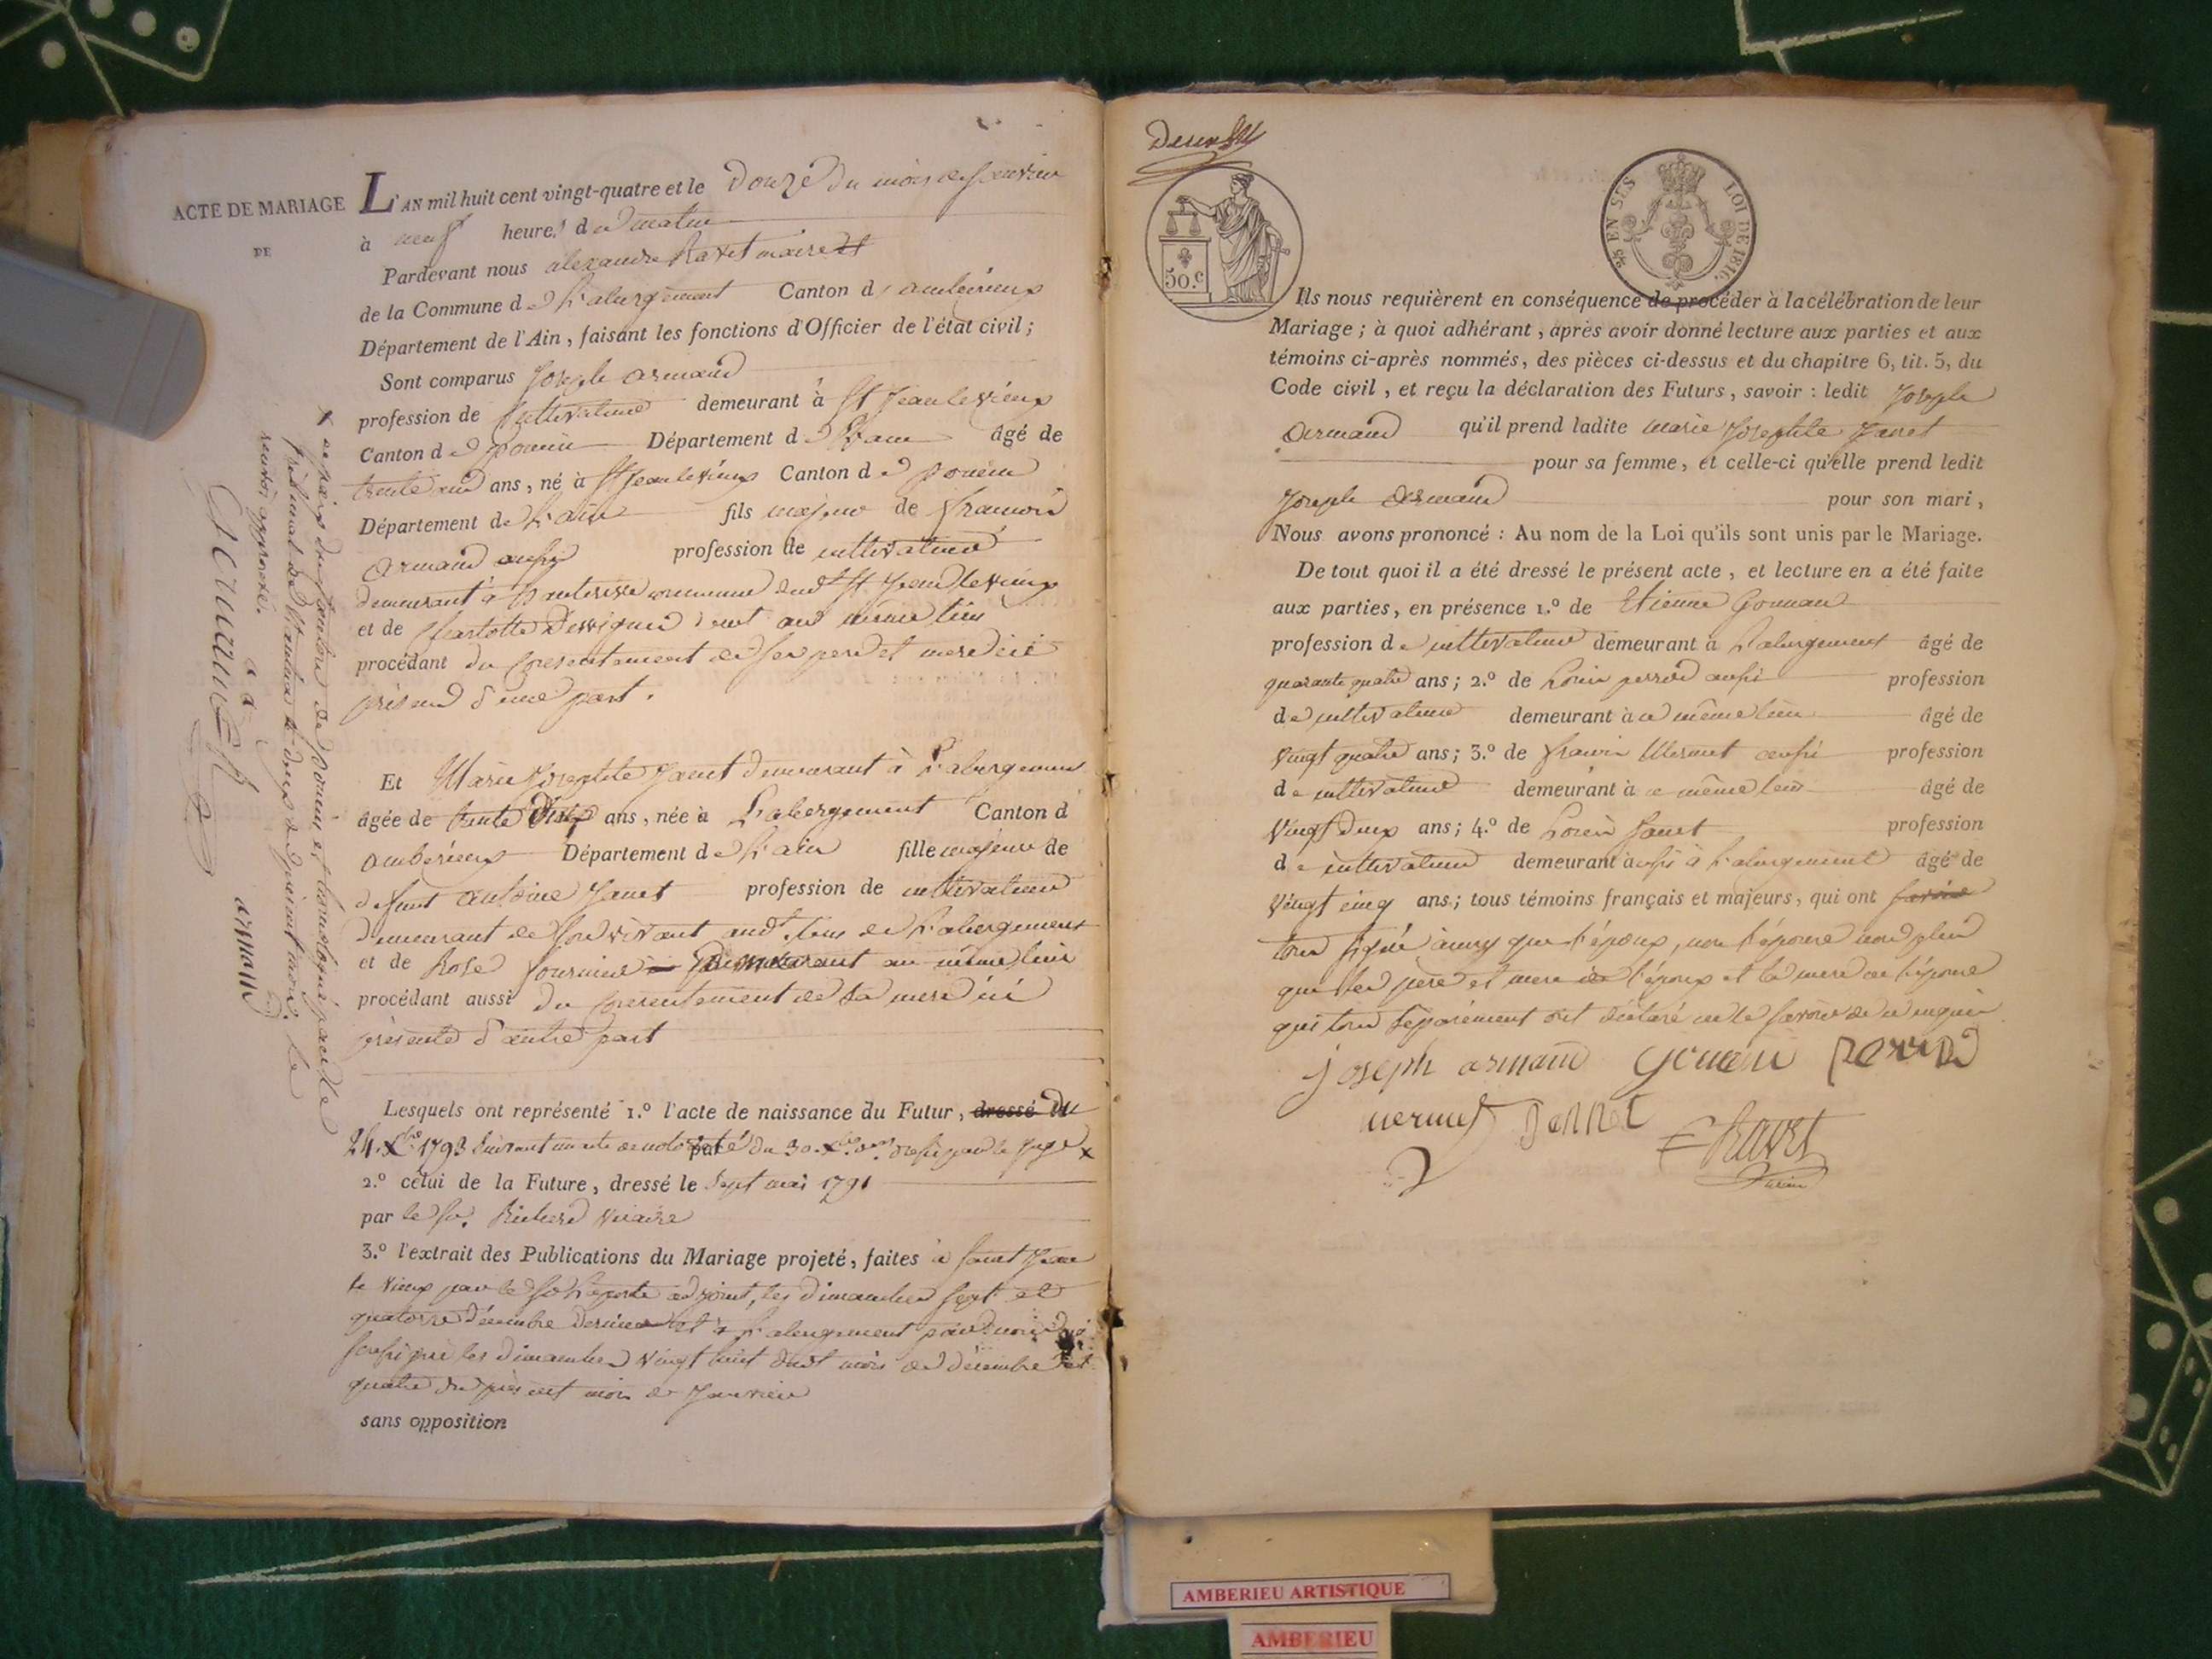 ACTE DE MARIAGE
DE
L'AN mil huit cent vingt-quatre et le Douze du mois de Janvier
à neuf heures du matin
Pardevant nous alexandre Ravet maire
de la Commune de L'abergement Canton d'ambérieux
Département de l'Ain, faisant les fonctions d'Officier de l'état civil;
Sont comparus Joseph armand
profession de Cultivateur demeurant à St Jean le vieux
Canton de poncin Département de L'ain âgé de
trente ans, né à St Jean le vieux Canton de poncin
Département de L'ain fils majeur de francois
armand aussi profession de cultivateur
demeurant à hauterive commune dud. St Jean le vieux
et de Charlotte au même lieu
procédant du Consentement de ses pere et mere ici
présens d'une part.
Et Marie Josephte Janet demeurant à L'abergement
âgée de trente deux ans, née à L'abergement Canton d
ambérieux Département de L'ain fille majeure de
defunt antoine Janet profession de cultivateur
demeurant de son vivant aud. lieu de L'abergement
et de Rose fournier demeurant au même lieu
procédant aussi du Consentement de sa mere ici
présente d'autre part
Lesquels ont représenté 1.º l'acte de naissance du Futur, dressé du
24 Xbre 1793 suivant un acte de notoriété du 30 Xbre dressé par le juge x
2.º celui de la Future, dressé le sept mai 1791
par le Sr. Richerd vicaire
3.º l'extrait des Publications du Mariage projeté, faites à Saint Jean
le vieux par le Sr adjoint, les dimanches sept et
quatorze décembre dernier et à L'abergement par nous
soussigné les dimanches vingt huit dudt mois de décembre et
quatre du présent mois de Janvier
sans opposition
x de paix du canton de poncin et homologué par le
tribunal de Nantua le deux du présent mois. le
renvoi approuvé.
armand
50.c
25 EN SUS
LOI DE 1816.
Ils nous requièrent en conséquence de procéder à la célébration de leur
Mariage; à quoi adhérant, après avoir donné lecture aux parties et aux
témoins ci-après nommés, des pièces ci-dessus et du chapitre 6, tit. 5, du
Code civil, et reçu la déclaration des Futurs, savoir: ledit Joseph
armand qu'il prend ladite marie Josephte Janet
pour sa femme, et celle-ci qu'elle prend ledit
Joseph armand pour son mari,
Nous avons prononcé: Au nom de la Loi qu'ils sont unis par le Mariage.
De tout quoi il a été dressé le présent acte, et lecture en a été faite
aux parties, en présence 1.º de Etienne
profession de cultivateur demeurant à L'abergement âgé de
quarante quatre ans; 2.º de Louis perrod aussi profession
de cultivateur demeurant à ce même lieu âgé de
vingt quatre ans; 3.º de francois Mermet aussi profession
de cultivateur demeurant à ce même lieu âgé de
vingt deux ans; 4.º de Louis Janet profession
de cultivateur demeurant aussi à L'abergement âgé de
vingt cinq ans; tous témoins français et majeurs, qui ont
tous signé ainsy que l'époux, non l'épouse non plus
que les pere et mere de l'époux et la mere de l'épouse
qui tous séparément ont déclaré ne le savoir de ce enquis
joseph armand
mermet Janet
Ravet
AMBERIEU ARTISTIQUE
AMBERIEU